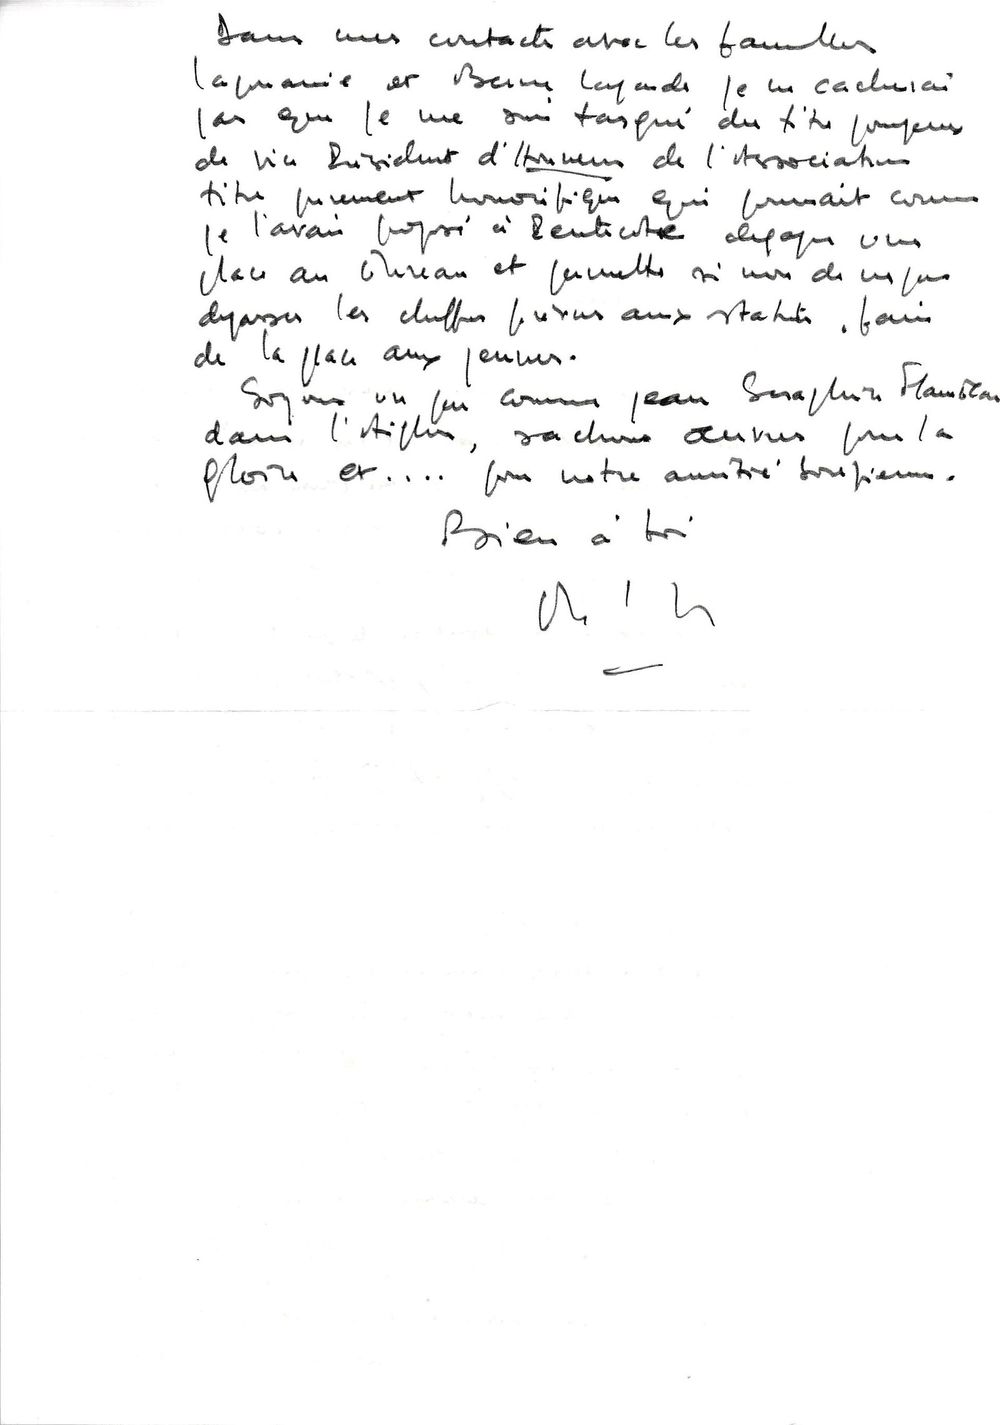 Dans mes contacts avec les familles
et Berne Lagarde je ne cacherai
pas que je me suis targué du titre pompeux
de vice Président d'Honneur de l'Association
titre purement honorifique qui pourrait comme
je l'avais proposé à dégager une
place au Bureau et permettre si non de ne pas
dépasser les chiffres prévus aux statuts, faire
de la place aux jeunes.
Soyons un peu comme Jean Séraphin Flambeau
dans l'Aiglon, sachons œuvrer pour la
gloire et.... pour notre amitié
Bien à toi